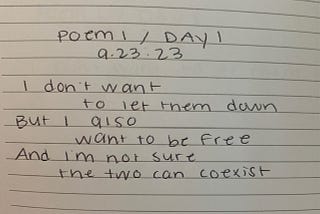 Poem 1 / DAY 1
9.23.23
I don't want
to let them down
But I also
want to be free
And I'm not sure
the two can coexist